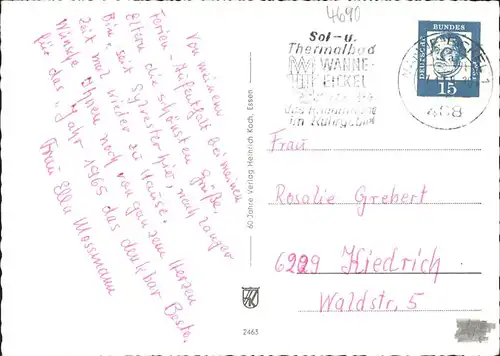 Von meinem
Ferien-Aufenthalt bei meinen
Eltern die schönsten Grüße.
Bin seit Sylvester hier, nach langer
Zeit mal wieder zu Hause.
Wünsche Ihnen noch von ganzem Herzen
für das Jahr 1965 das denkbar Beste.
Frau Ella Mossmann
60 Jahre Verlag Heinrich Koch, Essen
2463
4690
Sol- u.
Thermalbad
WANNE-
EICKEL
im Ruhrgebiet
DEUTSCHE BUNDESPOST
15
Frau
Rosalie Grebert
6229 Kiedrich
Waldstr. 5